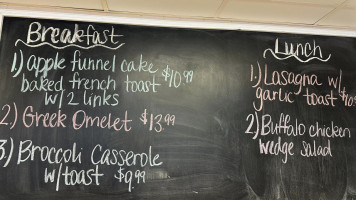 Breakfast
1) apple funnel cake
baked french toast $10.99
w/2 links
2) Greek Omelet $13.99
3) Broccoli Casserole
w/toast $9.99
Lunch
1.) Lasagna w/
garlic toast
2) Buffalo chicken
wedge salad